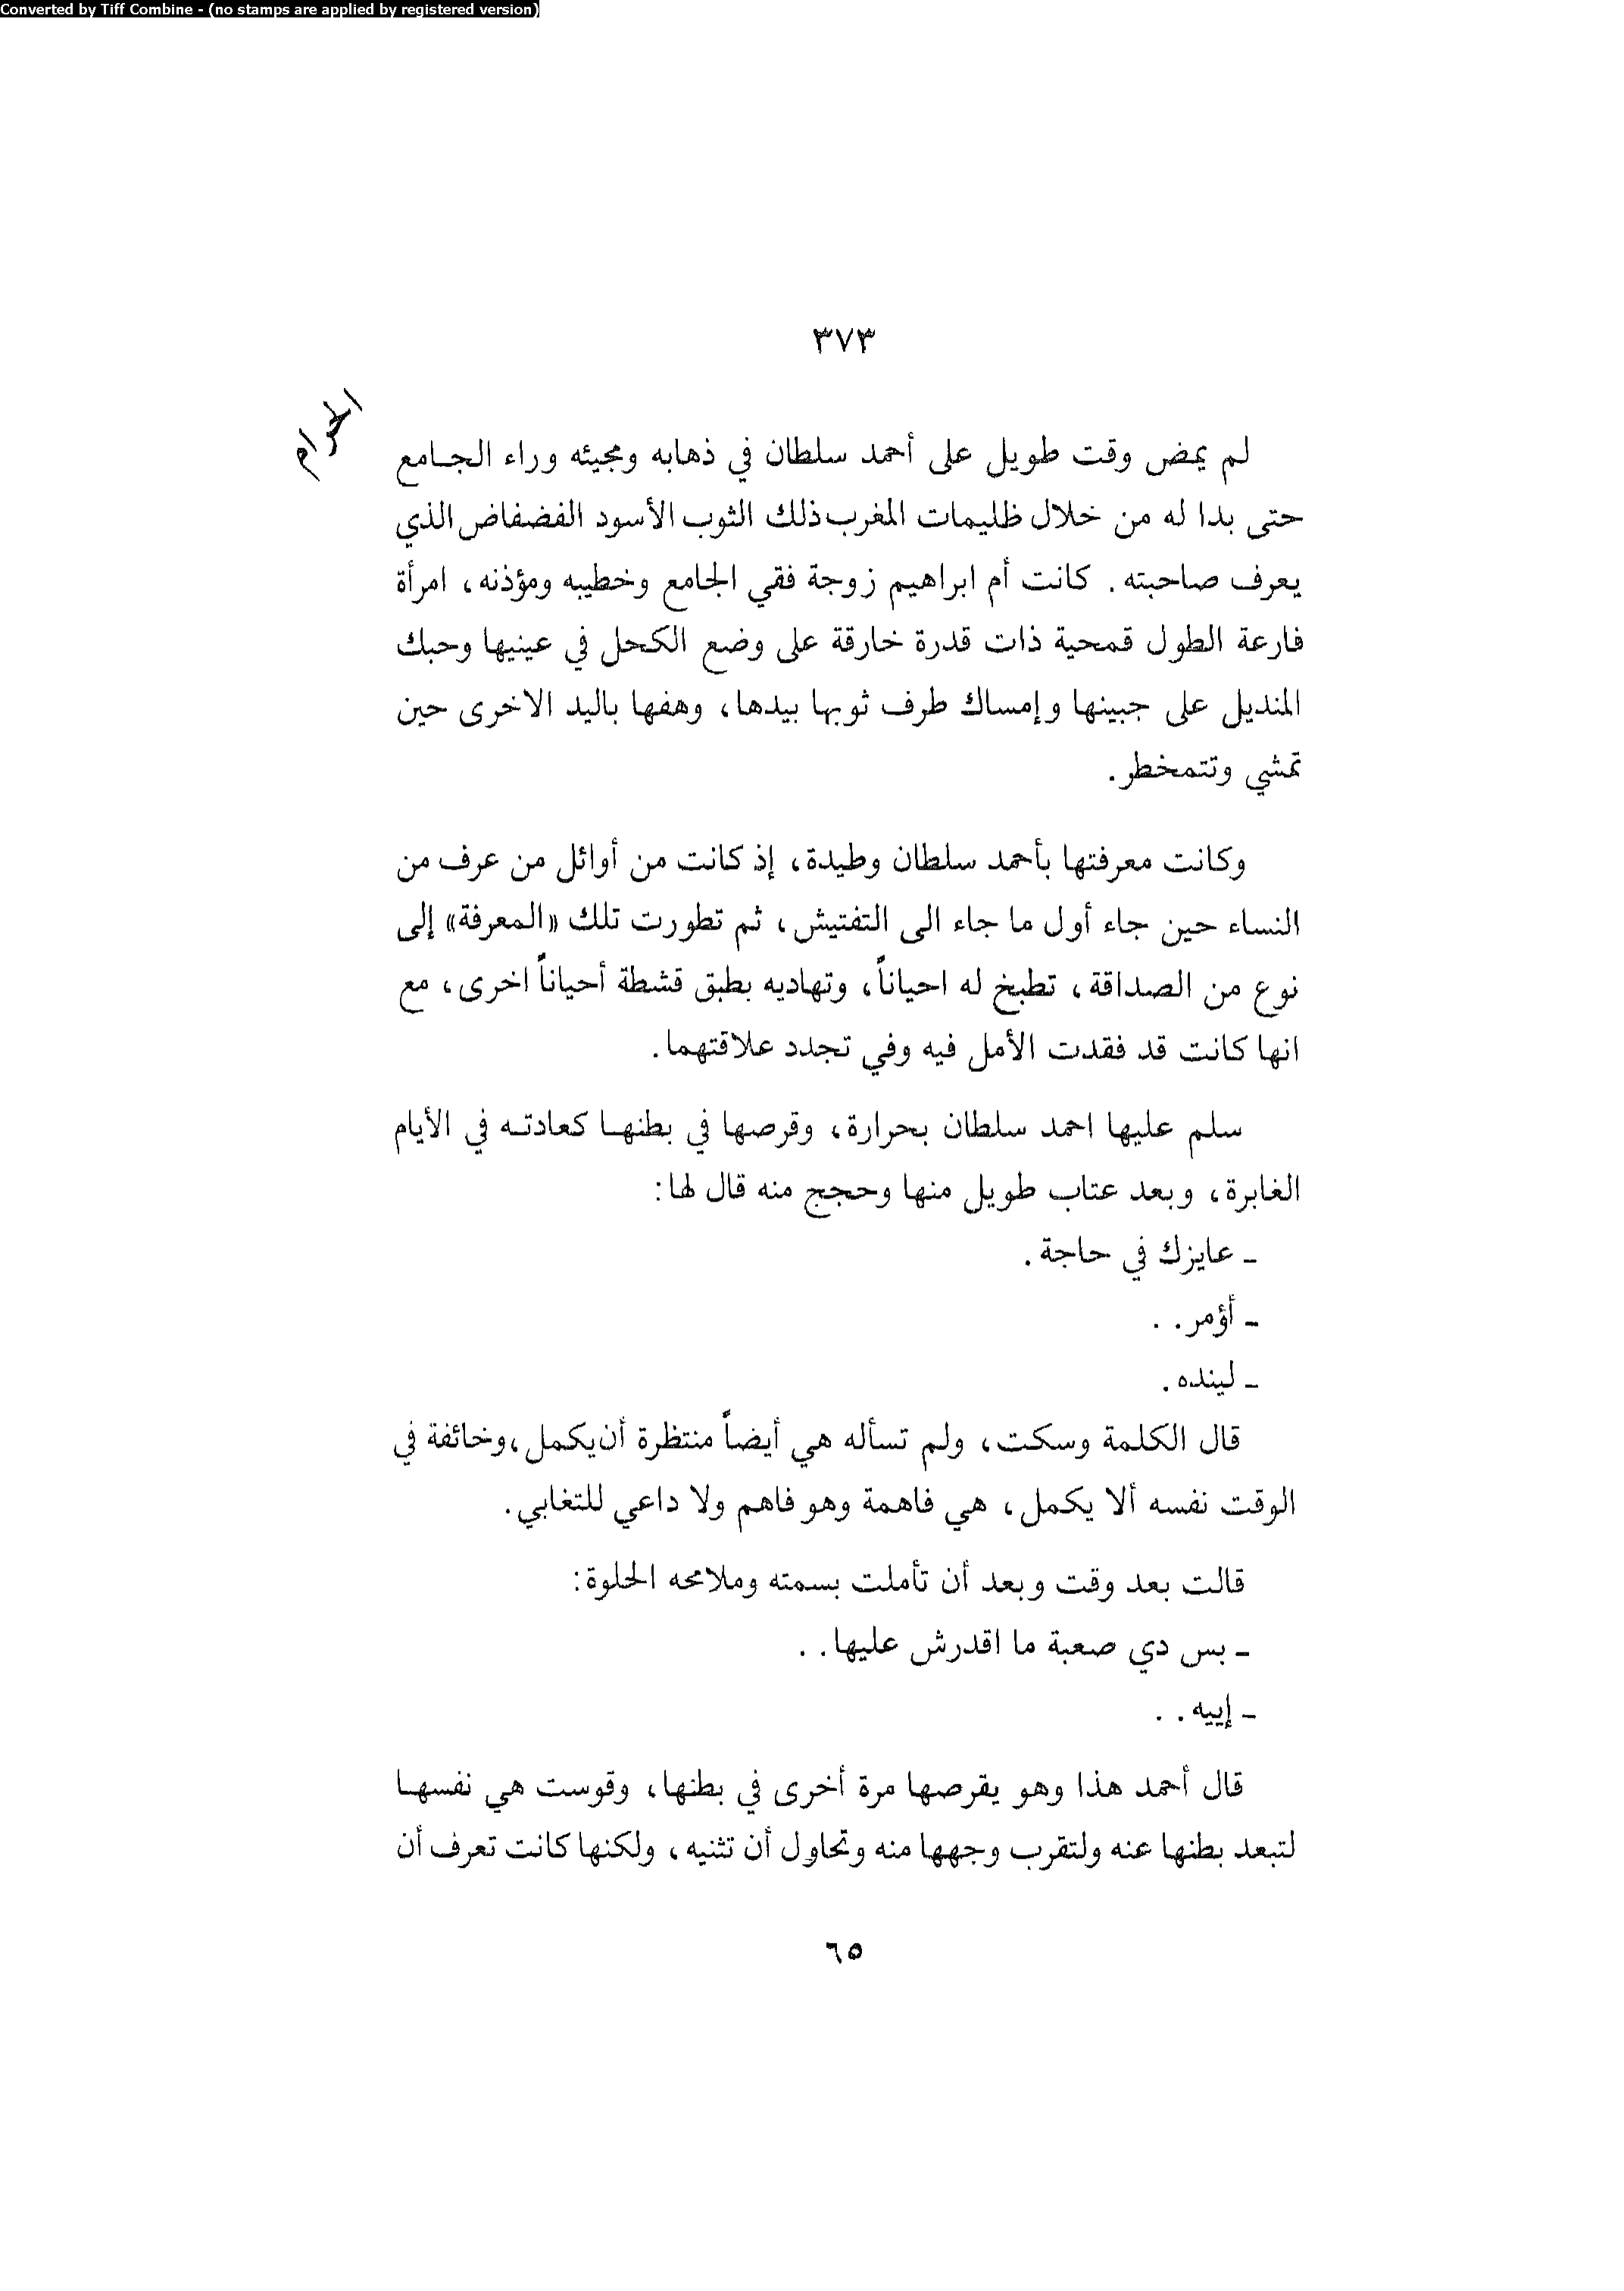 Converted by Tiff Combine - (no stamps are applied by registered version)
٣٧٣
الحرام
لم يمض وقت طويل على أحمد سلطان في ذهابه ومجيئه وراء الجامع
حتى بدا له من خلال ظليمات المغرب ذلك الثوب الأسود الفضفاض الذي
يعرف صاحبته. كانت أم ابراهيم زوجة فقي الجامع وخطيبه ومؤذنه، امرأة
فارعة الطول قمحية ذات قدرة خارقة على وضع الكحل في عينيها وحبك
المنديل على جبينها وإمساك طرف ثوبها بيدها، وهفها باليد الاخرى حين
تمشي وتتمخطر.
وكانت معرفتها بأحمد سلطان وطيدة، إذ كانت من أوائل من عرف من
النساء حين جاء أول ما جاء الى التفتيش، ثم تطورت تلك «المعرفة» إلى
نوع من الصداقة، تطبخ له احياناً، وتهاديه بطبق قشطة أحياناً اخرى، مع
انها كانت قد فقدت الأمل فيه وفي تجدد علاقتهما.
سلم عليها احمد سلطان بحرارة، وقرصها في بطنها كعادته في الأيام
الغابرة، وبعد عتاب طويل منها وحجج منه قال لها:
ـ عايزك في حاجة.
ـ أؤمر..
ـ لينده.
قال الكلمة وسكت، ولم تسأله هي أيضاً منتظرة أن يكمل، وخائفة في
الوقت نفسه ألا يكمل، هي فاهمة وهو فاهم ولا داعي للتغابي.
قالت بعد وقت وبعد أن تأملت بسمته وملامحه الحلوة:
ـ بس دي صعبة ما اقدرش عليها..
ـ إييه..
قال أحمد هذا وهو يقرصها مرة أخرى في بطنها، وقوست هي نفسها
لتبعد بطنها عنه ولتقرب وجهها منه وتحاول أن تثنيه، ولكنها كانت تعرف أن
٦٥